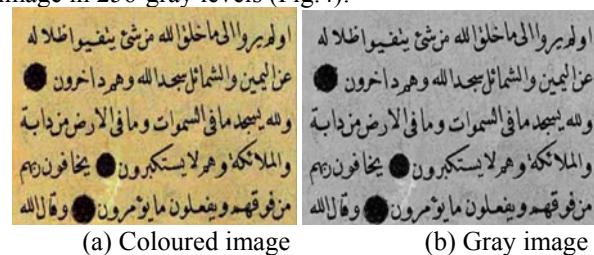 image in 256 gray levels (Fig.4).
اولم يروا الى ما خلق الله من شئ يتفيوا ظلاله
عن اليمين والشمائل سجدا لله وهم داخرون
ولله يسجد ما فى السموات وما فى الارض من دابة
والملائكة وهم لا يستكبرون يخافون ربهم
من فوقهم ويفعلون ما يؤمرون وقال الله
(a) Coloured image
اولم يروا الى ما خلق الله من شئ يتفيوا ظلاله
عن اليمين والشمائل سجدا لله وهم داخرون
ولله يسجد ما فى السموات وما فى الارض من دابة
والملائكة وهم لا يستكبرون يخافون ربهم
من فوقهم ويفعلون ما يؤمرون وقال الله
(b) Gray image